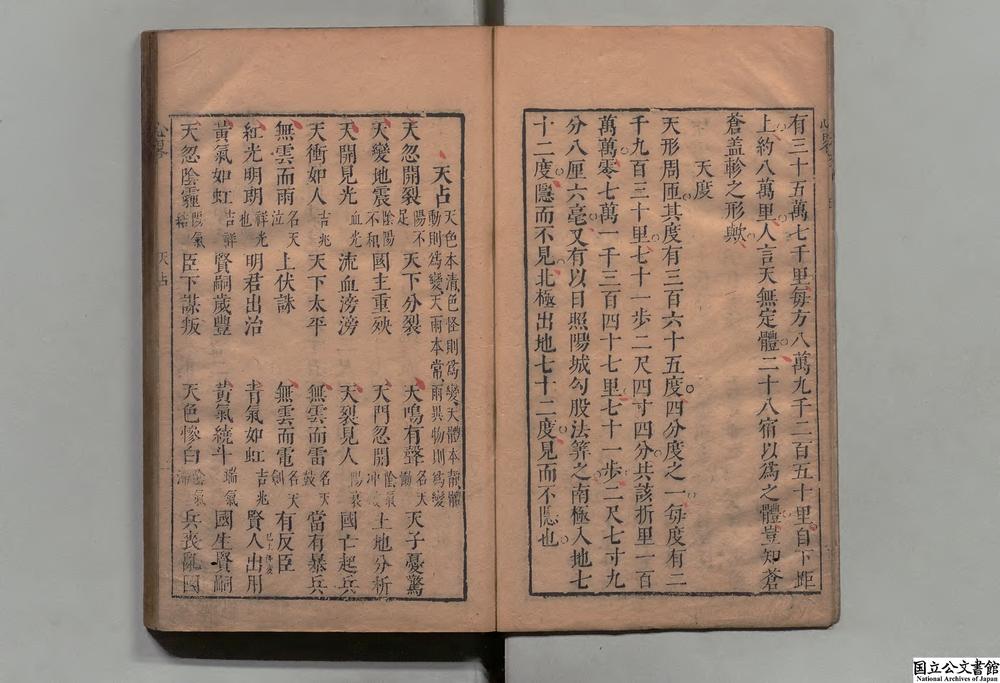 有三十五萬七千里每方八萬九千二百五十里自下距
上約八萬里人言天無定體二十八宿以爲之體豈知蒼
蒼盖軫之形歟
天度
天形周匝其度有三百六十五度四分度之一每度有二
千九百三十里七十一步二尺四寸四分共該折里一百
萬萬零七萬一千三百四十七里七十一步二尺七寸九
分八厘六毫又有以日照陽城勾股法筭之南極入地七
十二度隱而不見北極出地七十二度見而不隱也
天占 天色本清色怪則爲變天體本靜體
動則爲變天雨本常雨異物則爲變
天忽開裂 陽不足 天下分裂 天鳴有聲 名天 天子憂驚
天變地震 陰陽不和 國主重殃 天門忽開 陰氣冲 土地分析
天開見光 血光 流血滂滂 天裂見人 陽衰 國亡起兵
天衝如人 吉兆 天下太平 無雲而雷 名天鼓 當有暴兵
無雲而雨 名天泣 上伏誅 無雲而電 名天劍 有反臣
紅光明朗 祥光也 明君出治 青氣如虹 吉兆 賢人出用
黃氣如虹 吉祥 賢嗣歲豐 黃氣繞斗 瑞氣 國生賢嗣
天忽陰霾 陽氣 臣下謀叛 天色慘白 陰氣 兵喪亂國
天占
国立公文書館
National Archives of Japan